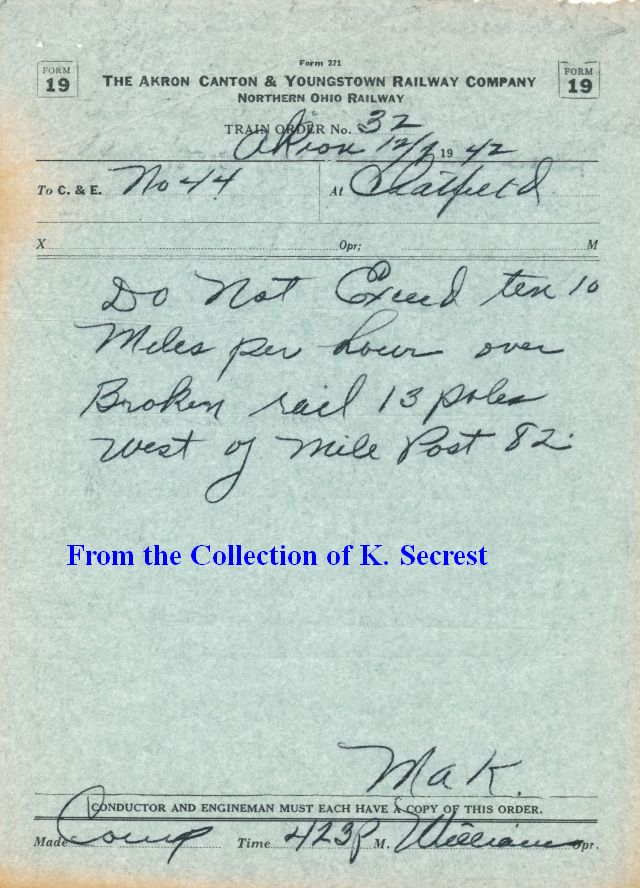 Form 271
FORM 19
THE AKRON CANTON & YOUNGSTOWN RAILWAY COMPANY
FORM 19
NORTHERN OHIO RAILWAY
TRAIN ORDER No. 32
Akron 12/7 1942
To C. & E. No 44 At Chatfield
X Opr; M
Do Not Exceed ten 10
Miles per hour over
Broken rail 13 poles
West of Mile Post 82.
From the Collection of K. Secrest
MaK.
CONDUCTOR AND ENGINEMAN MUST EACH HAVE A COPY OF THIS ORDER.
Made Comp Time 423P M. Williams Opr.